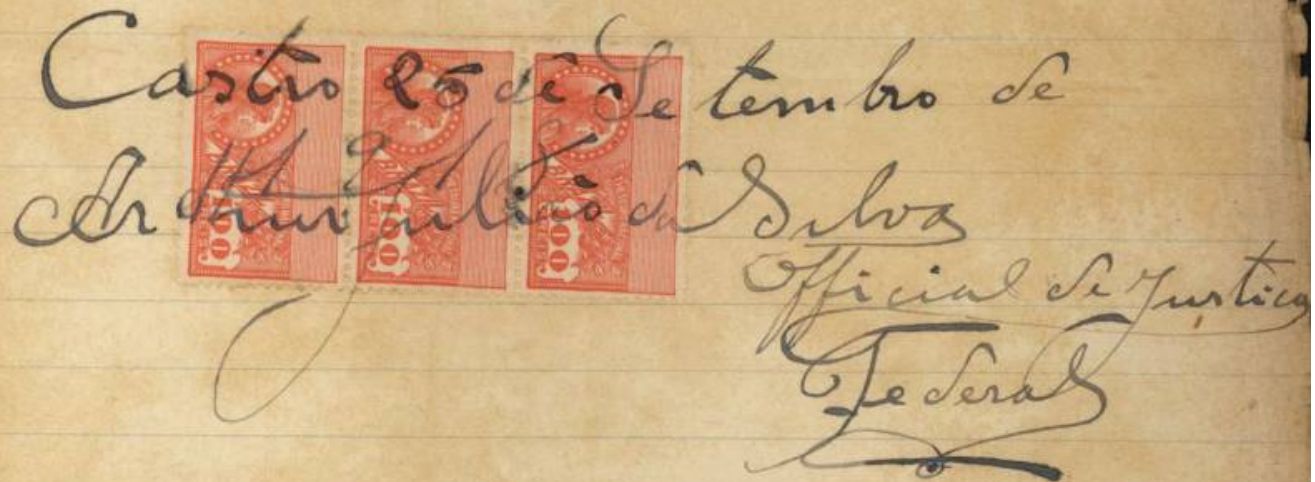 Castro 25 de Setembro de
Arthur Julião da Silva
Official de Justica
Federal